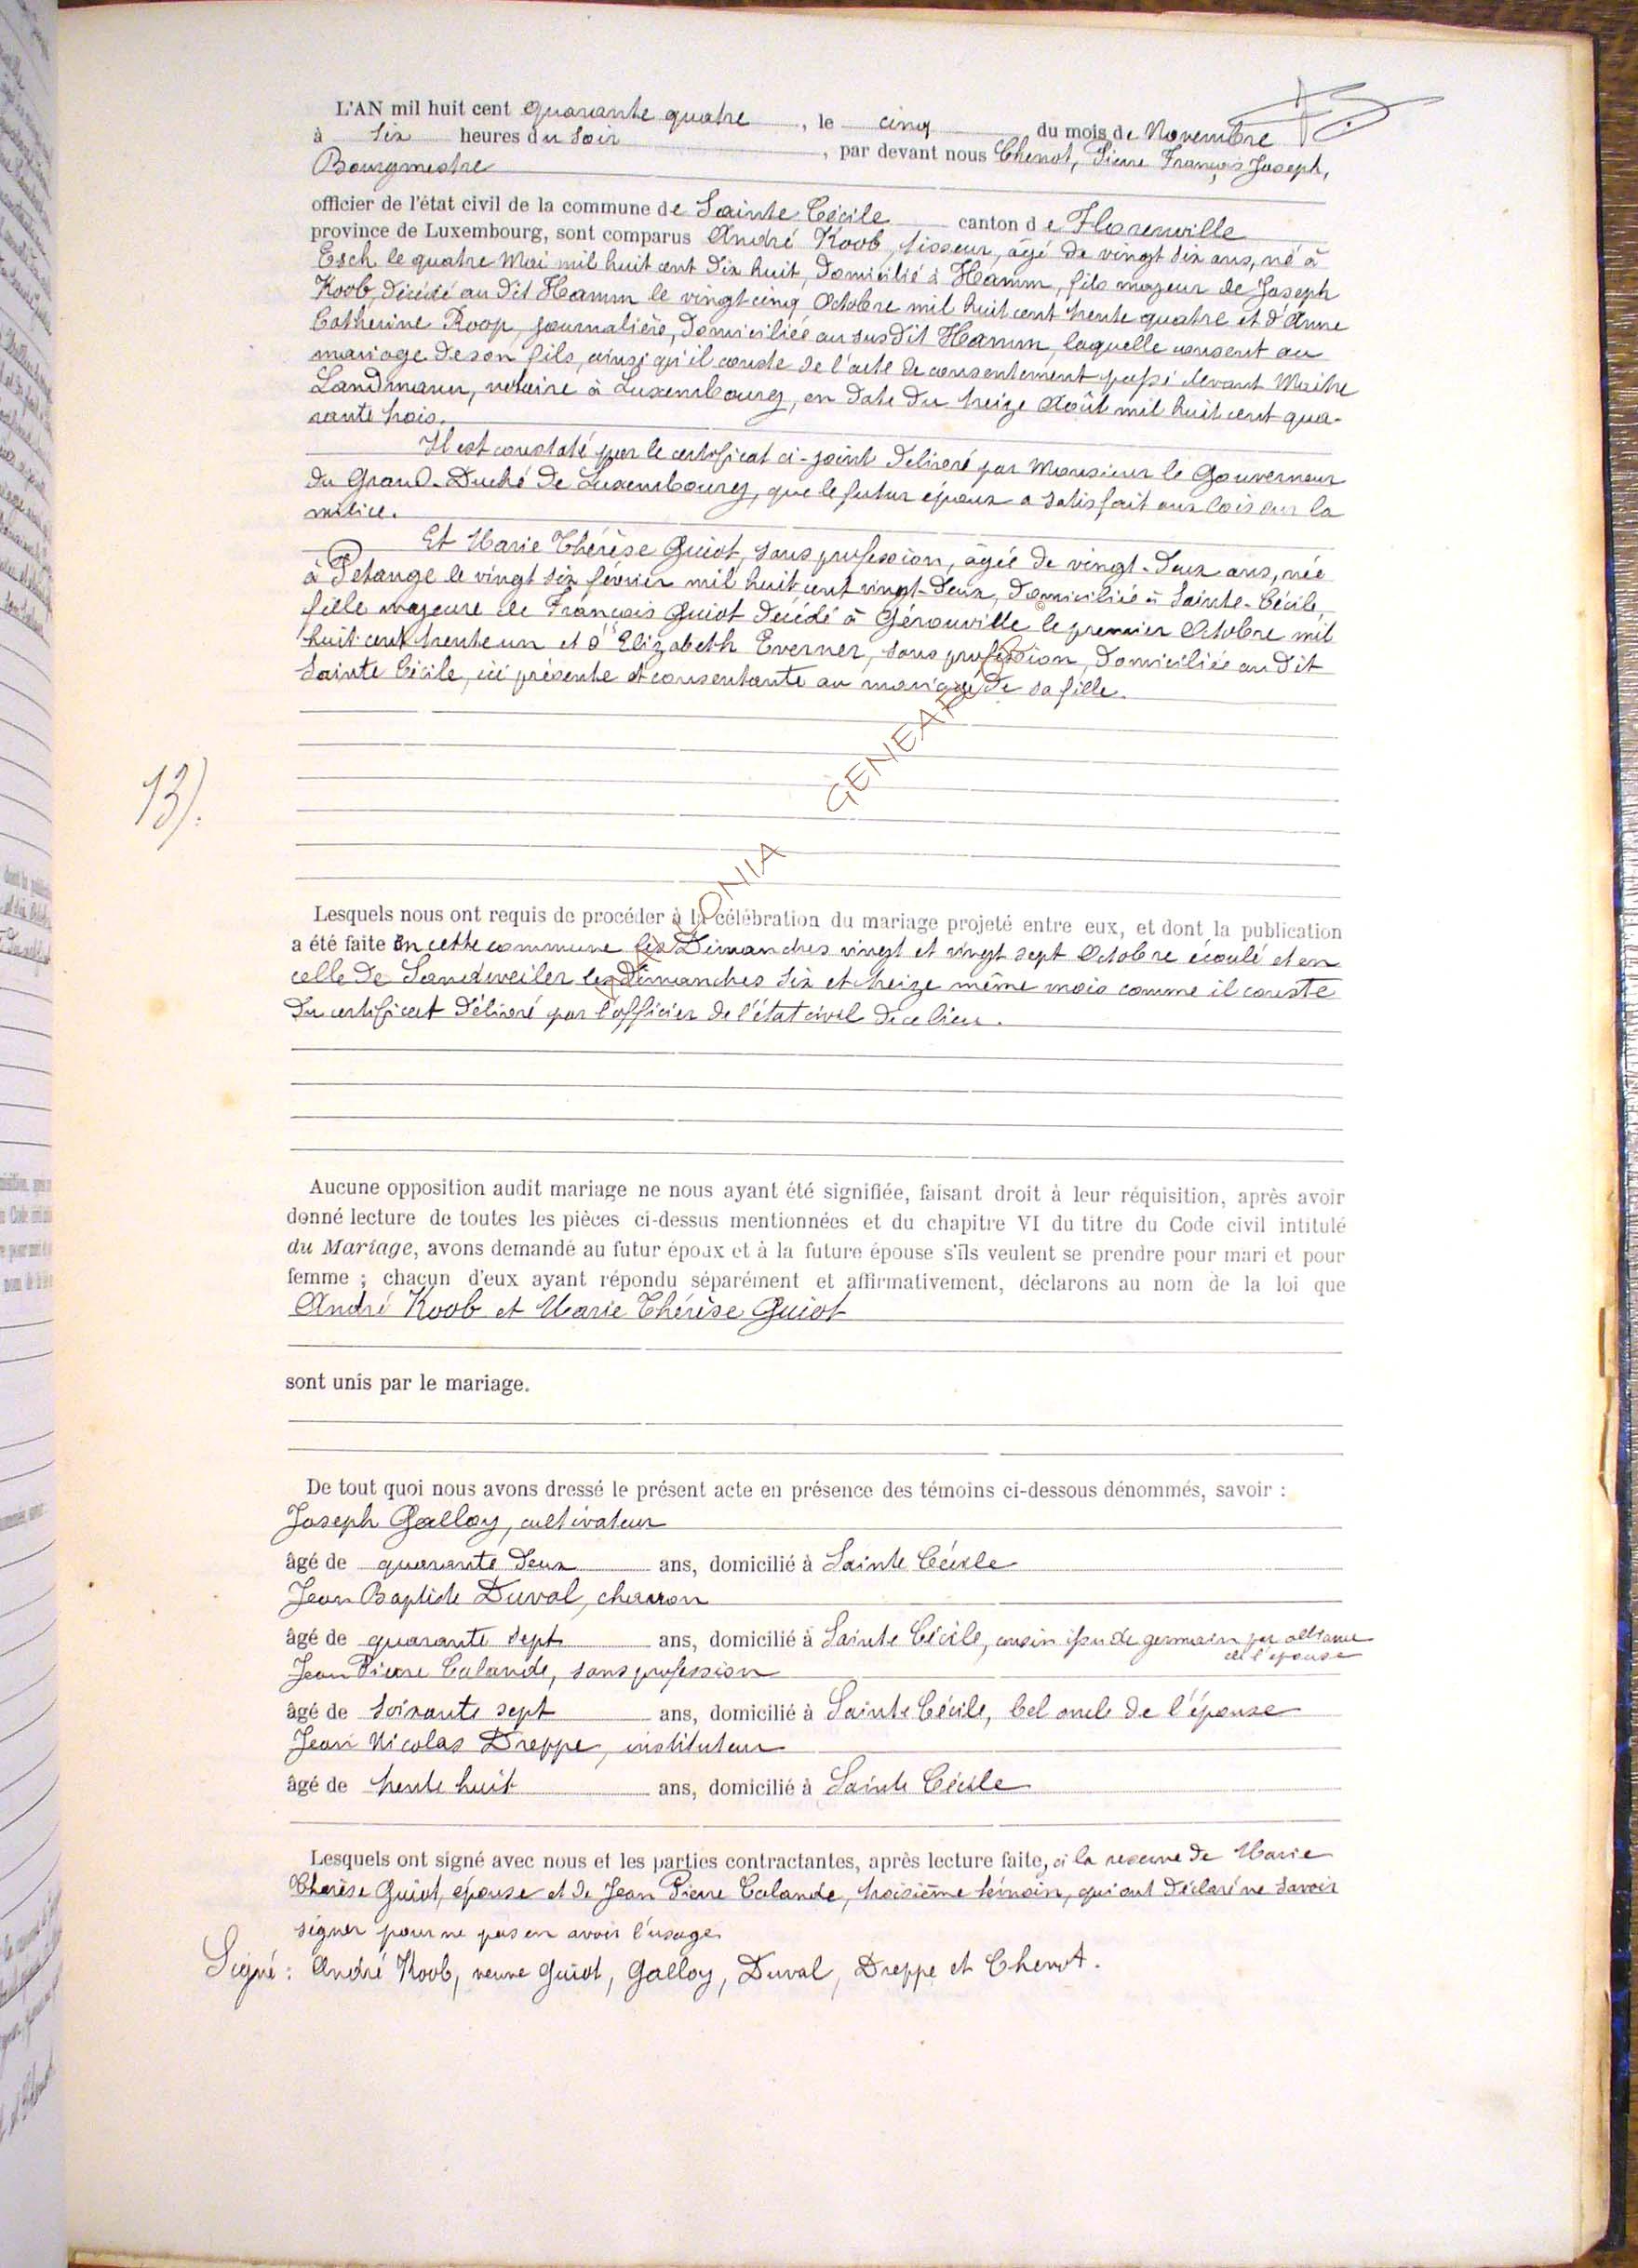 L'AN mil huit cent quarante quatre, le cinq du mois de Novembre
à six heures du soir, par devant nous Chenot, Pierre François Joseph,
Bourgmestre
officier de l'état civil de la commune de Sainte Cécile canton de Florenville
province de Luxembourg, sont comparus André Koob, tisseur, âgé de vingt six ans, né à
Esch le quatre Mai mil huit cent dix huit, domicilié à Hamm, fils majeur de Joseph
Koob, décédé au dit Hamm le vingt cinq Octobre mil huit cent trente quatre et d'Anne
Catherine Roop, journalière, domiciliée au susdit Hamm, laquelle consent au
mariage de son fils, ainsi qu'il conste de l'acte de consentement passé devant Maître
Landmann, notaire à Luxembourg, en date du treize Août mil huit cent qua-
rante trois.
Il est constaté par le certificat ci-joint délivré par Monsieur le Gouverneur
du Grand-Duché de Luxembourg, que le futur époux a satisfait aux lois sur la
milice.
Et Marie Thérèse Guiot, sans profession, âgée de vingt-deux ans, née
à Petange le vingt six février mil huit cent vingt-deux, domiciliée à Sainte-Cécile,
fille majeure de François Guiot décédé à Gérouville le premier Octobre mil
huit cent trente un et d'Elizabeth Everner, sans profession, domiciliée au dit
Sainte Cécile, ici présente et consentante au mariage de sa fille.
13).
Lesquels nous ont requis de procéder à la célébration du mariage projeté entre eux, et dont la publication
a été faite en cette commune les Dimanches vingt et vingt sept Octobre écoulé et en
celle de Sandweiler les Dimanches six et treize même mois comme il conste
du certificat délivré par l'officier de l'état civil de ce lieu.
Aucune opposition audit mariage ne nous ayant été signifiée, faisant droit à leur réquisition, après avoir
donné lecture de toutes les pièces ci-dessus mentionnées et du chapitre VI du titre du Code civil intitulé
du Mariage, avons demandé au futur époux et à la future épouse s'ils veulent se prendre pour mari et pour
femme ; chacun d'eux ayant répondu séparément et affirmativement, déclarons au nom de la loi que
André Koob et Marie Thérèse Guiot
sont unis par le mariage.
De tout quoi nous avons dressé le présent acte en présence des témoins ci-dessous dénommés, savoir :
Joseph Galloy, cultivateur
âgé de quarante deux ans, domicilié à Sainte Cécile
Jean Baptiste Duval, charron
âgé de quarante sept ans, domicilié à Sainte Cécile, cousin issu de germain par alliance
de l'épouse
Jean Pierre Calande, sans profession
âgé de soixante sept ans, domicilié à Sainte Cécile, bel oncle de l'épouse
Jean Nicolas Dreppe, instituteur
âgé de trente huit ans, domicilié à Sainte Cécile
Lesquels ont signé avec nous et les parties contractantes, après lecture faite, à la reserve de Marie
Therèse Guiot, épouse et de Jean Pierre Calande, troisième témoin, qui ont déclaré ne savoir
signer pour ne pas en avoir l'usage.
Signé : André Koob, veuve Guiot, Galloy, Duval, Dreppe et Chenot.